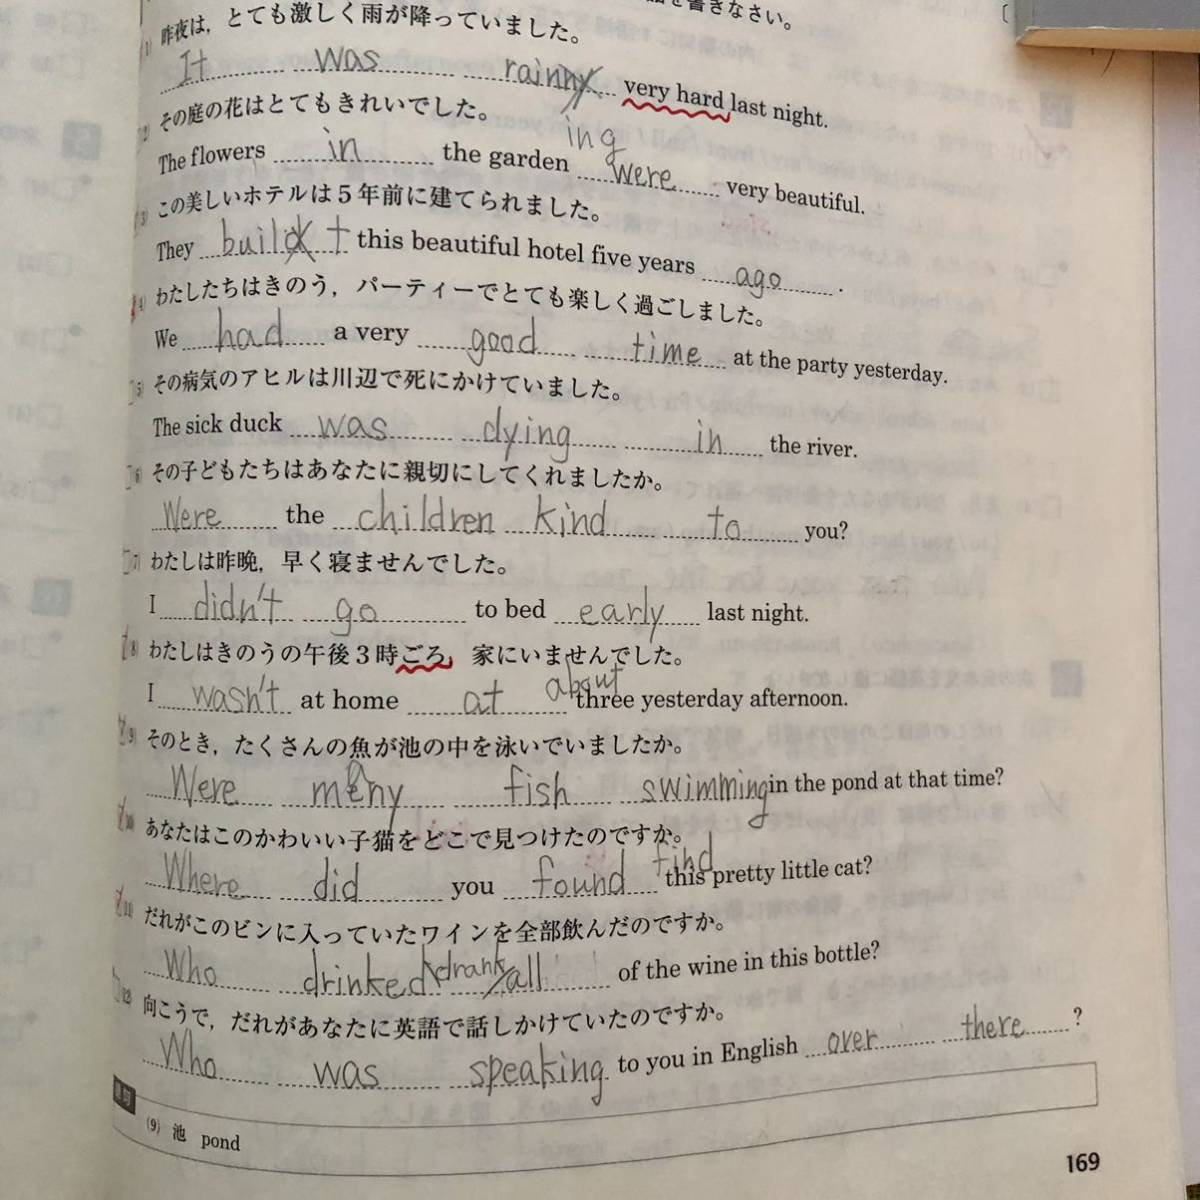 を書きなさい。
(1) 昨夜は，とても激しく雨が降っていました。
It was rainny ing very hard last night.
(2) その庭の花はとてもきれいでした。
The flowers in the garden were very beautiful.
(3) この美しいホテルは５年前に建てられました。
They build t this beautiful hotel five years ago .
(4) わたしたちはきのう，パーティーでとても楽しく過ごしました。
We had a very good time at the party yesterday.
(5) その病気のアヒルは川辺で死にかけていました。
The sick duck was dying in the river.
(6) その子どもたちはあなたに親切にしてくれましたか。
Were the children kind to you?
(7) わたしは昨晩，早く寝ませんでした。
I didn't go to bed early last night.
(8) わたしはきのうの午後３時ごろ，家にいませんでした。
I wasn't at home at about three yesterday afternoon.
(9) そのとき，たくさんの魚が池の中を泳いでいましたか。
Were meny a fish swimming in the pond at that time?
(10) あなたはこのかわいい子猫をどこで見つけたのですか。
Where did you found find this pretty little cat?
(11) だれがこのビンに入っていたワインを全部飲んだのですか。
Who drinked drank all of the wine in this bottle?
(12) 向こうで，だれがあなたに英語で話しかけていたのですか。
Who was speaking to you in English over there ?
(9) 池 pond
169